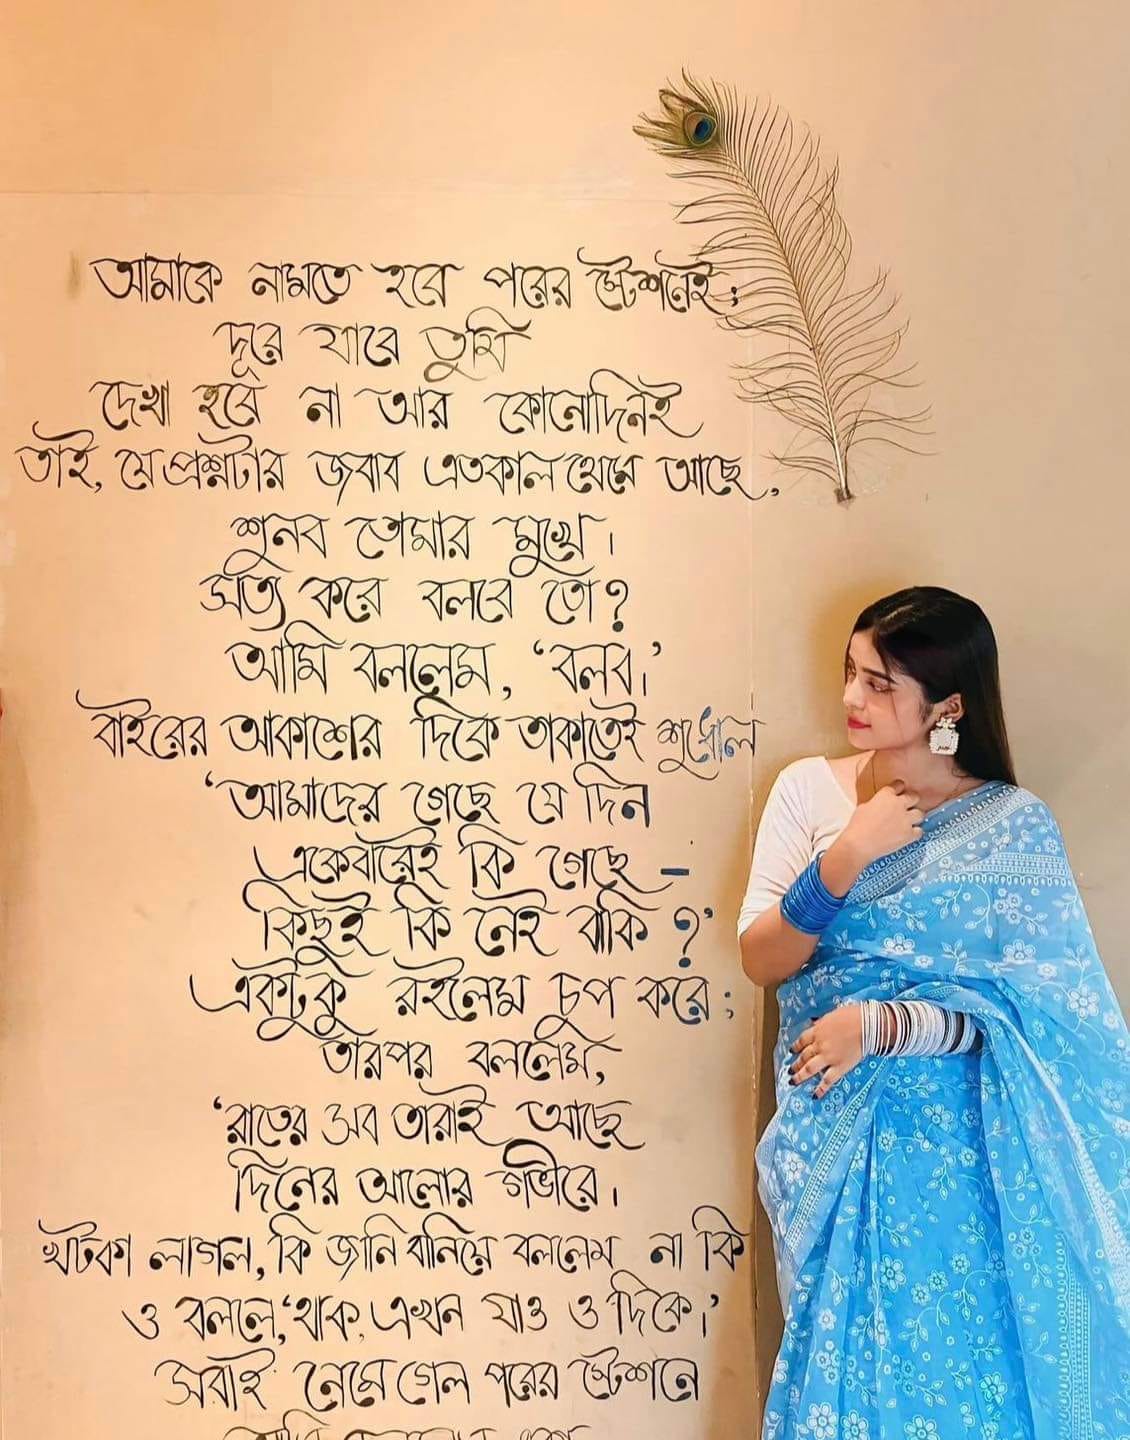 আমাকে নামতে হবে পরের স্টেশনেই;
দূরে যাবে তুমি
দেখা হবে না আর কোনোদিনই
তাই, যে প্রশ্নটার জবাব এতকাল থেমে আছে,
শুনব তোমার মুখে।
সত্য করে বলবে তো?
আমি বললেম, ‘বলব।’
বাইরের আকাশের দিকে তাকাতেই শুধোল
‘আমাদের গেছে যে দিন
একেবারেই কি গেছে –
কিছুই কি নেই বাকি ?’
একটুকু রইলেম চুপ করে ;
তারপর বললেম,
‘রাতের সব তারাই আছে
দিনের আলোর গভীরে।
খটকা লাগল, কি জানি বানিয়ে বললেম না কি
ও বললে, ‘থাক, এখন যাও ও দিকে।’
সবাই নেমে গেল পরের স্টেশনে